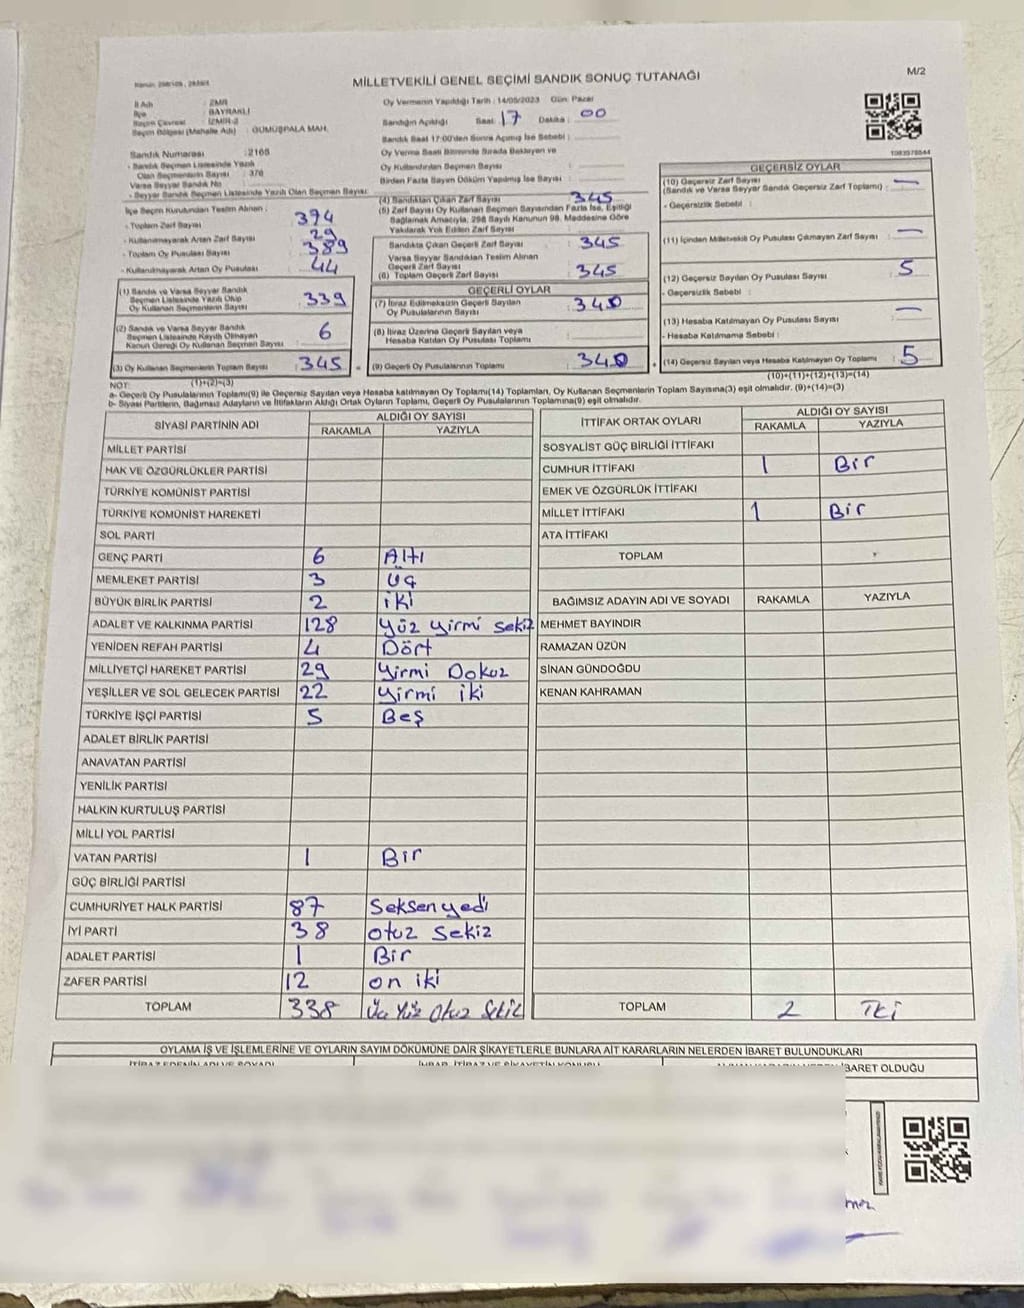 MİLLETVEKİLİ GENEL SEÇİMİ SANDIK SONUÇ TUTANAĞI
M/2
İl Adı : İZMİR
İlçe : BAYRAKLI
Seçim Çevresi : İZMİR-2
Seçim Bölgesi (Mahalle Adı) : GÜMÜŞPALA MAH.
Oy Vermenin Yapıldığı Tarih : 14/05/2023 Gün: Pazar
Sandığın Açıldığı Saat : 17 Dakika : 00
Sandık Saat 17:00'den Sonra Açılmış İse Sebebi :
Oy Verme Saati Bitiminde Sırada Bekleyen ve
Oy Kullandırılan Seçmen Sayısı :
Birden Fazla Sayım Döküm Yapılmış İse Sayısı :
Sandık Numarası
- Sandık Seçmen Listesinde Yazılı
Olan Seçmenlerin Sayısı : 376
Varsa Seyyar Sandık No
- Seyyar Sandık Seçmen Listesinde Yazılı Olan Seçmen Sayısı:
İlçe Seçim Kurulundan Teslim Alınan :
- Toplam Zarf Sayısı : 394
- Kullanılmayarak Artan Zarf Sayısı : 29
- Toplam Oy Pusulası Sayısı : 389
- Kullanılmayarak Artan Oy Pusulası : 44
(1) Sandık ve Varsa Seyyar Sandık
Seçmen Listesinde Yazılı Olup
Oy Kullanan Seçmenlerin Sayısı : 339
(2) Sandık ve Varsa Seyyar Sandık
Seçmen Listesinde Kayıtlı Olmayan
Kanun Gereği Oy Kullanan Seçmen Sayısı : 6
(3) Oy Kullanan Seçmenlerin Toplam Sayısı : 345
(1)+(2)=(3)
(4) Sandıktan Çıkan Zarf Sayısı : 345
(5) Zarf Sayısı Oy Kullanan Seçmen Sayısından Fazla İse, Eşitliği
Sağlamak Amacıyla, 298 Sayılı Kanunun 98. Maddesine Göre
Yakılarak Yok Edilen Zarf Sayısı :
Sandıkta Çıkan Geçerli Zarf Sayısı : 345
Varsa Seyyar Sandıktan Teslim Alınan
Geçerli Zarf Sayısı
(6) Toplam Geçerli Zarf Sayısı : 345
GEÇERLİ OYLAR
(7) İtiraz Edilmeksizin Geçerli Sayılan
Oy Pusulalarının Sayısı : 340
(8) İtiraz Üzerine Geçerli Sayılan veya
Hesaba Katılan Oy Pusulası Toplamı :
(9) Geçerli Oy Pusulalarının Toplamı : 340
GEÇERSİZ OYLAR
(10) Geçersiz Zarf Sayısı
(Sandık ve Varsa Seyyar Sandık Geçersiz Zarf Toplamı) : —
- Geçersizlik Sebebi :
(11) İçinden Milletvekili Oy Pusulası Çıkmayan Zarf Sayısı : —
(12) Geçersiz Sayılan Oy Pusulası Sayısı : 5
- Geçersizlik Sebebi :
(13) Hesaba Katılmayan Oy Pusulası Sayısı : —
- Hesaba Katılmama Sebebi :
(14) Geçersiz Sayılan veya Hesaba Katılmayan Oy Toplamı : 5
(10)+(11)+(12)+(13)=(14)
NOT:
a- Geçerli Oy Pusulalarının Toplamı(9) ile Geçersiz Sayılan veya Hesaba katılmayan Oy Toplamı(14) Toplamları, Oy Kullanan Seçmenlerin Toplam Sayısına(3) eşit olmalıdır. (9)+(14)=(3)
b- Siyasi Partilerin, Bağımsız Adayların ve İttifakların Aldığı Ortak Oyların Toplamı, Geçerli Oy Pusulalarının Toplamına(9) eşit olmalıdır.
SİYASİ PARTİNİN ADI ALDIĞI OY SAYISI
RAKAMLA YAZIYLA
MİLLET PARTİSİ
HAK VE ÖZGÜRLÜKLER PARTİSİ
TÜRKİYE KOMÜNİST PARTİSİ
TÜRKİYE KOMÜNİST HAREKETİ
SOL PARTİ
GENÇ PARTİ 6 Altı
MEMLEKET PARTİSİ 3 Üç
BÜYÜK BİRLİK PARTİSİ 2 iki
ADALET VE KALKINMA PARTİSİ 128 Yüz yirmi sekiz
YENİDEN REFAH PARTİSİ 4 Dört
MİLLİYETÇİ HAREKET PARTİSİ 29 Yirmi Dokuz
YEŞİLLER VE SOL GELECEK PARTİSİ 22 Yirmi iki
TÜRKİYE İŞÇİ PARTİSİ 5 Beş
ADALET BİRLİK PARTİSİ
ANAVATAN PARTİSİ
YENİLİK PARTİSİ
HALKIN KURTULUŞ PARTİSİ
MİLLİ YOL PARTİSİ
VATAN PARTİSİ 1 Bir
GÜÇ BİRLİĞİ PARTİSİ
CUMHURİYET HALK PARTİSİ 87 Seksen yedi
İYİ PARTİ 38 otuz sekiz
ADALET PARTİSİ 1 Bir
ZAFER PARTİSİ 12 on iki
TOPLAM 338 Üç Yüz Otuz Sekiz
İTTİFAK ORTAK OYLARI ALDIĞI OY SAYISI
RAKAMLA YAZIYLA
SOSYALİST GÜÇ BİRLİĞİ İTTİFAKI
CUMHUR İTTİFAKI 1 Bir
EMEK VE ÖZGÜRLÜK İTTİFAKI
MİLLET İTTİFAKI 1 Bir
ATA İTTİFAKI
TOPLAM
BAĞIMSIZ ADAYIN ADI VE SOYADI RAKAMLA YAZIYLA
MEHMET BAYINDIR
RAMAZAN ÜZÜN
SİNAN GÜNDOĞDU
KENAN KAHRAMAN
TOPLAM 2 İki
OYLAMA İŞ VE İŞLEMLERİNE VE OYLARIN SAYIM DÖKÜMÜNE DAİR ŞİKAYETLERLE BUNLARA AİT KARARLARIN NELERDEN İBARET BULUNDUKLARI
BARET OLDUĞU